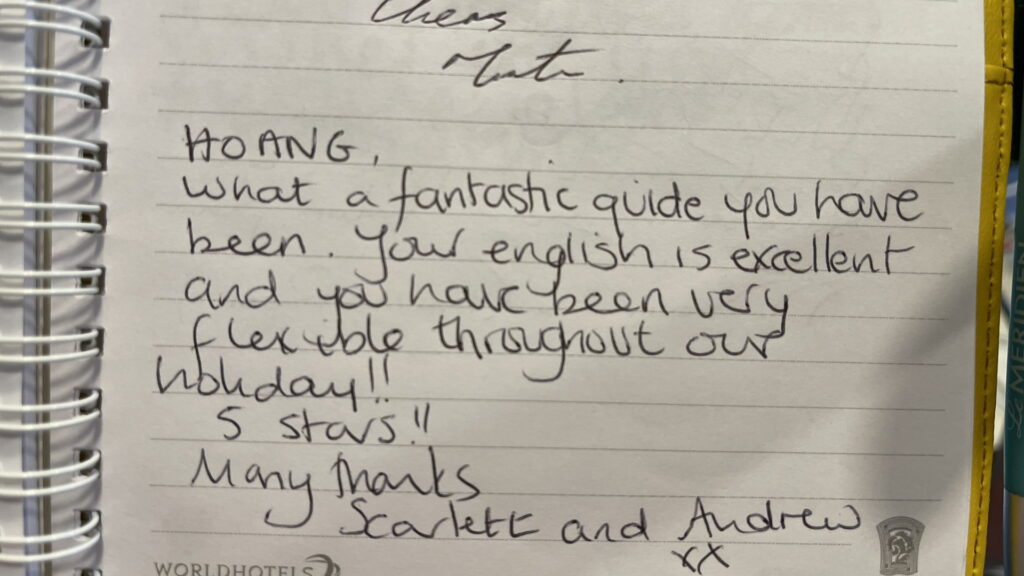 Cheers
HOANG,
What a fantastic guide you have
been. Your english is excellent
and you have been very
flexible throughout our
holiday!!
5 stars!!
Many thanks
Scarlett and Andrew
xx
WORLDHOTELS
MERIDIEN